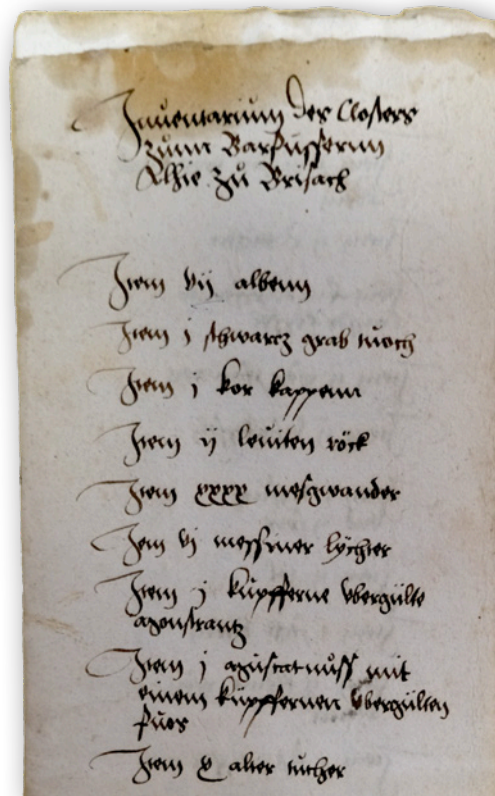 Inuentarium des Closters
zunn Barfüsserinn
Alhie zů Brisach
Item vij albenn
Item j schwartz grab tuoch
Item j kor kappenn
Item ij leuiten röck
Item xxxx mesgwander
Jem vj messiner lÿchter
Item j küpfferne vbergülte
monstrantz
Item j muscatnuss mit
einem küpffernen vbergülten
fuos
Item x alter tücher